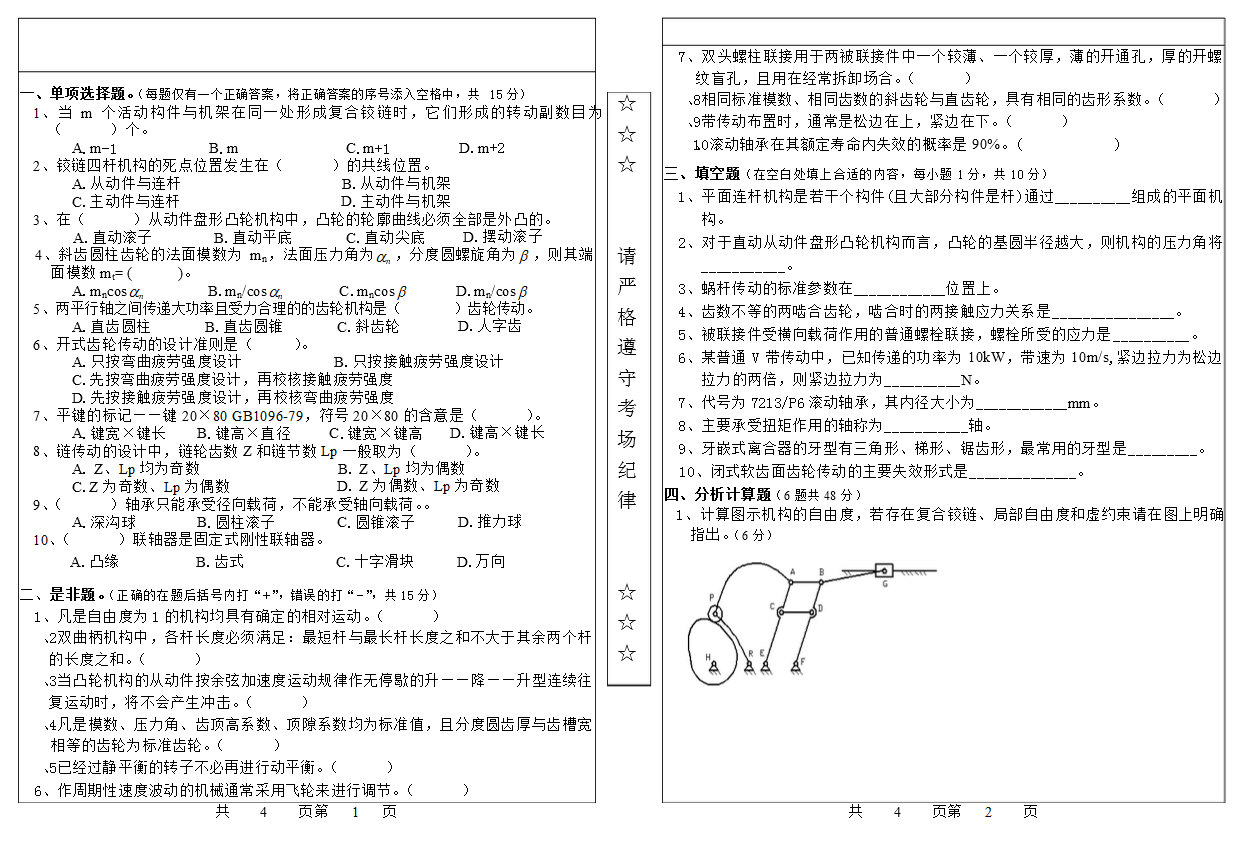 一、单项选择题。(每题仅有一个正确答案，将正确答案的序号添入空格中，共 15分)
1、当 m 个活动构件与机架在同一处形成复合铰链时，它们形成的转动副数目为
（ ）个。
A. m−1 B. m C. m+1 D. m+2
2、铰链四杆机构的死点位置发生在（ ）的共线位置。
A. 从动件与连杆 B. 从动件与机架
C. 主动件与连杆 D. 主动件与机架
3、在（ ）从动件盘形凸轮机构中，凸轮的轮廓曲线必须全部是外凸的。
A. 直动滚子 B. 直动平底 C. 直动尖底 D. 摆动滚子
4、斜齿圆柱齿轮的法面模数为 mn，法面压力角为αn，分度圆螺旋角为β，则其端
面模数 mt= ( )。
A. mncosαn B. mn/cosαn C. mncosβ D. mn/cosβ
5、两平行轴之间传递大功率且受力合理的的齿轮机构是（ ）齿轮传动。
A. 直齿圆柱 B. 直齿圆锥 C. 斜齿轮 D. 人字齿
6、开式齿轮传动的设计准则是（ ）。
A. 只按弯曲疲劳强度设计 B. 只按接触疲劳强度设计
C. 先按弯曲疲劳强度设计，再校核接触疲劳强度
D. 先按接触疲劳强度设计，再校核弯曲疲劳强度
7、平键的标记——键20×80 GB1096-79，符号20×80的含意是（ ）。
A. 键宽×键长 B. 键高×直径 C. 键宽×键高 D. 键高×键长
8、链传动的设计中，链轮齿数Z和链节数Lp一般取为（ ）。
A. Z、Lp均为奇数 B. Z、Lp均为偶数
C. Z为奇数、Lp为偶数 D. Z为偶数、Lp为奇数
9、（ ）轴承只能承受径向载荷，不能承受轴向载荷。。
A. 深沟球 B. 圆柱滚子 C. 圆锥滚子 D. 推力球
10、（ ）联轴器是固定式刚性联轴器。
A. 凸缘 B. 齿式 C. 十字滑块 D. 万向
二、是非题。(正确的在题后括号内打“+”，错误的打“−”，共15分)
1、凡是自由度为1的机构均具有确定的相对运动。（ ）
、2双曲柄机构中，各杆长度必须满足：最短杆与最长杆长度之和不大于其余两个杆
的长度之和。（ ）
、3当凸轮机构的从动件按余弦加速度运动规律作无停歇的升——降——升型连续往
复运动时，将不会产生冲击。（ ）
、4凡是模数、压力角、齿顶高系数、顶隙系数均为标准值，且分度圆齿厚与齿槽宽
相等的齿轮为标准齿轮。（ ）
、5已经过静平衡的转子不必再进行动平衡。（ ）
6、作周期性速度波动的机械通常采用飞轮来进行调节。（ ）
共 4 页第 1 页
☆
☆
☆
请
严
格
遵
守
考
场
纪
律
☆
☆
☆
7、双头螺柱联接用于两被联接件中一个较薄、一个较厚，薄的开通孔，厚的开螺
纹盲孔，且用在经常拆卸场合。（ ）
、8相同标准模数、相同齿数的斜齿轮与直齿轮，具有相同的齿形系数。（ ）
、9带传动布置时，通常是松边在上，紧边在下。（ ）
、10滚动轴承在其额定寿命内失效的概率是90%。（ ）
三、填空题(在空白处填上合适的内容，每小题1分，共10分)
1、平面连杆机构是若干个构件(且大部分构件是杆)通过__________组成的平面机
构。
2、对于直动从动件盘形凸轮机构而言，凸轮的基圆半径越大，则机构的压力角将
___________。
3、蜗杆传动的标准参数在____________位置上。
4、齿数不等的两啮合齿轮，啮合时的两接触应力关系是________________。
5、被联接件受横向载荷作用的普通螺栓联接，螺栓所受的应力是__________。
6、某普通V带传动中，已知传递的功率为10kW，带速为10m/s,紧边拉力为松边
拉力的两倍，则紧边拉力为__________N。
7、代号为7213/P6滚动轴承，其内径大小为____________mm。
8、主要承受扭矩作用的轴称为___________轴。
9、牙嵌式离合器的牙型有三角形、梯形、锯齿形，最常用的牙型是_________。
10、闭式软齿面齿轮传动的主要失效形式是______________。
四、分析计算题(6题共48分)
1、计算图示机构的自由度，若存在复合铰链、局部自由度和虚约束请在图上明确
指出。(6分)
A B G
P C D
H R E F
共 4 页第 2 页